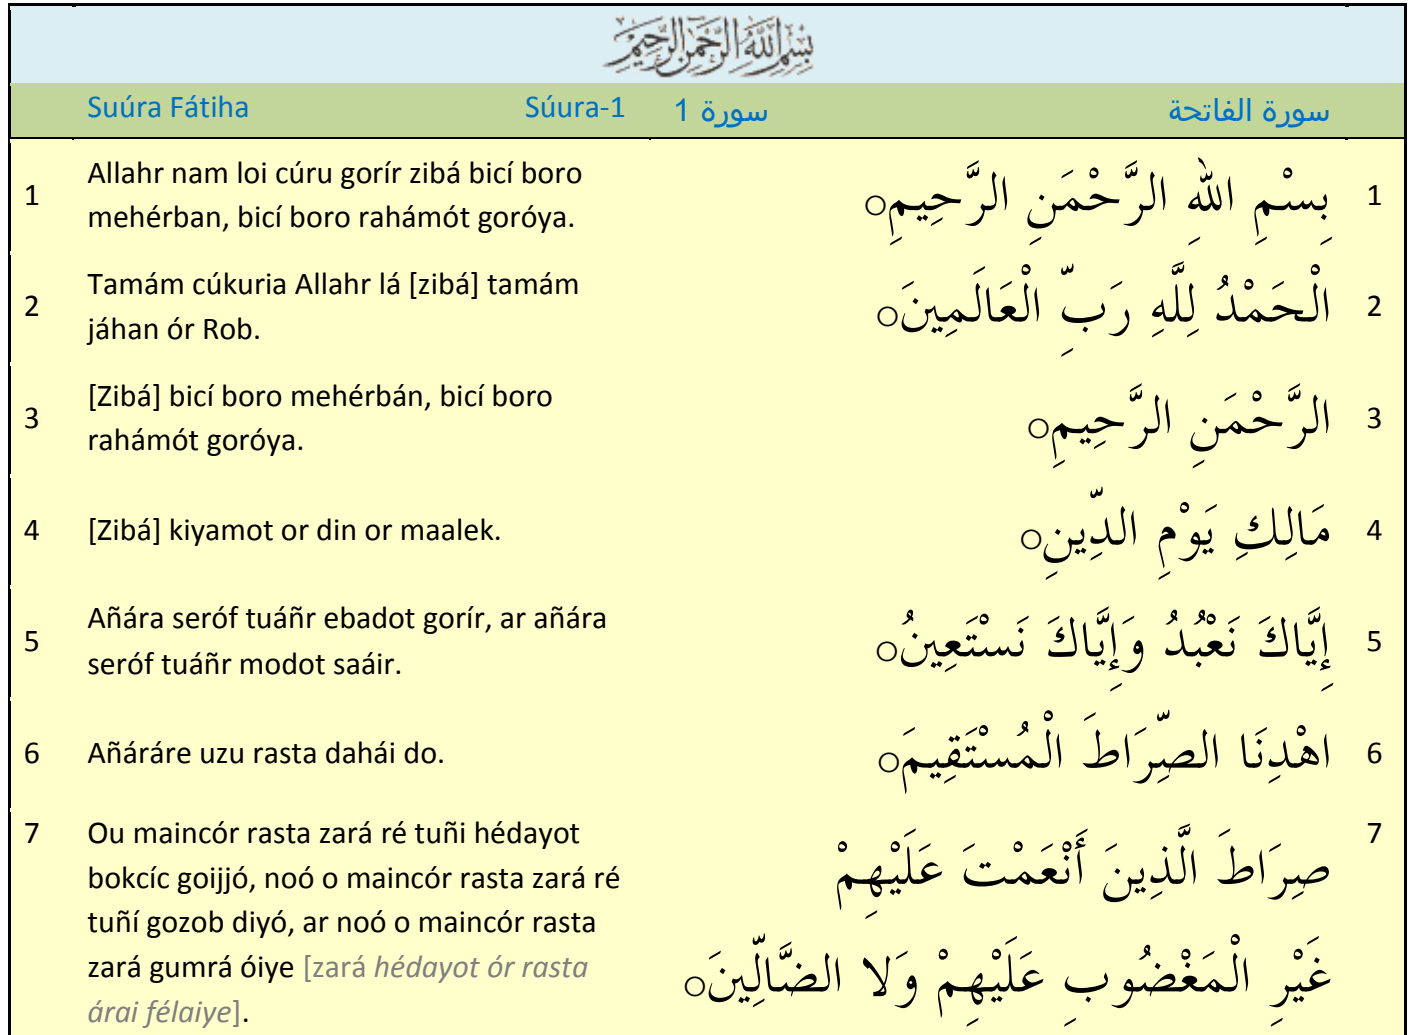 بِسْمِ اللهِ الرَّحْمَنِ الرَّحِيمِ
Suúra Fátiha Súura-1 سورة 1 سورة الفاتحة
1 Allahr nam loi cúru gorír zibá bicí boro
mehérban, bicí boro rahámót goróya.
بِسْمِ اللهِ الرَّحْمَنِ الرَّحِيمِ○ 1
2 Tamám cúkuria Allahr lá [zibá] tamám
jáhan ór Rob.
الْحَمْدُ لِلَّهِ رَبِّ الْعَالَمِينَ○ 2
3 [Zibá] bicí boro mehérbán, bicí boro
rahámót goróya.
الرَّحْمَنِ الرَّحِيمِ○ 3
4 [Zibá] kiyamot or din or maalek.
مَالِكِ يَوْمِ الدِّينِ○ 4
5 Añára seróf tuáñr ebadot gorír, ar añára
seróf tuáñr modot saáir.
إِيَّاكَ نَعْبُدُ وَإِيَّاكَ نَسْتَعِينُ○ 5
6 Añáráre uzu rasta dahái do.
اهْدِنَا الصِّرَاطَ الْمُسْتَقِيمَ○ 6
7 Ou maincór rasta zará ré tuñi hédayot
bokcíc goijjó, noó o maincór rasta zará ré
tuñí gozob diyó, ar noó o maincór rasta
zará gumrá óiye [zará hédayot ór rasta
árai félaiye].
صِرَاطَ الَّذِينَ أَنْعَمْتَ عَلَيْهِمْ 7
غَيْرِ الْمَغْضُوبِ عَلَيْهِمْ وَلا الضَّالِّينَ○